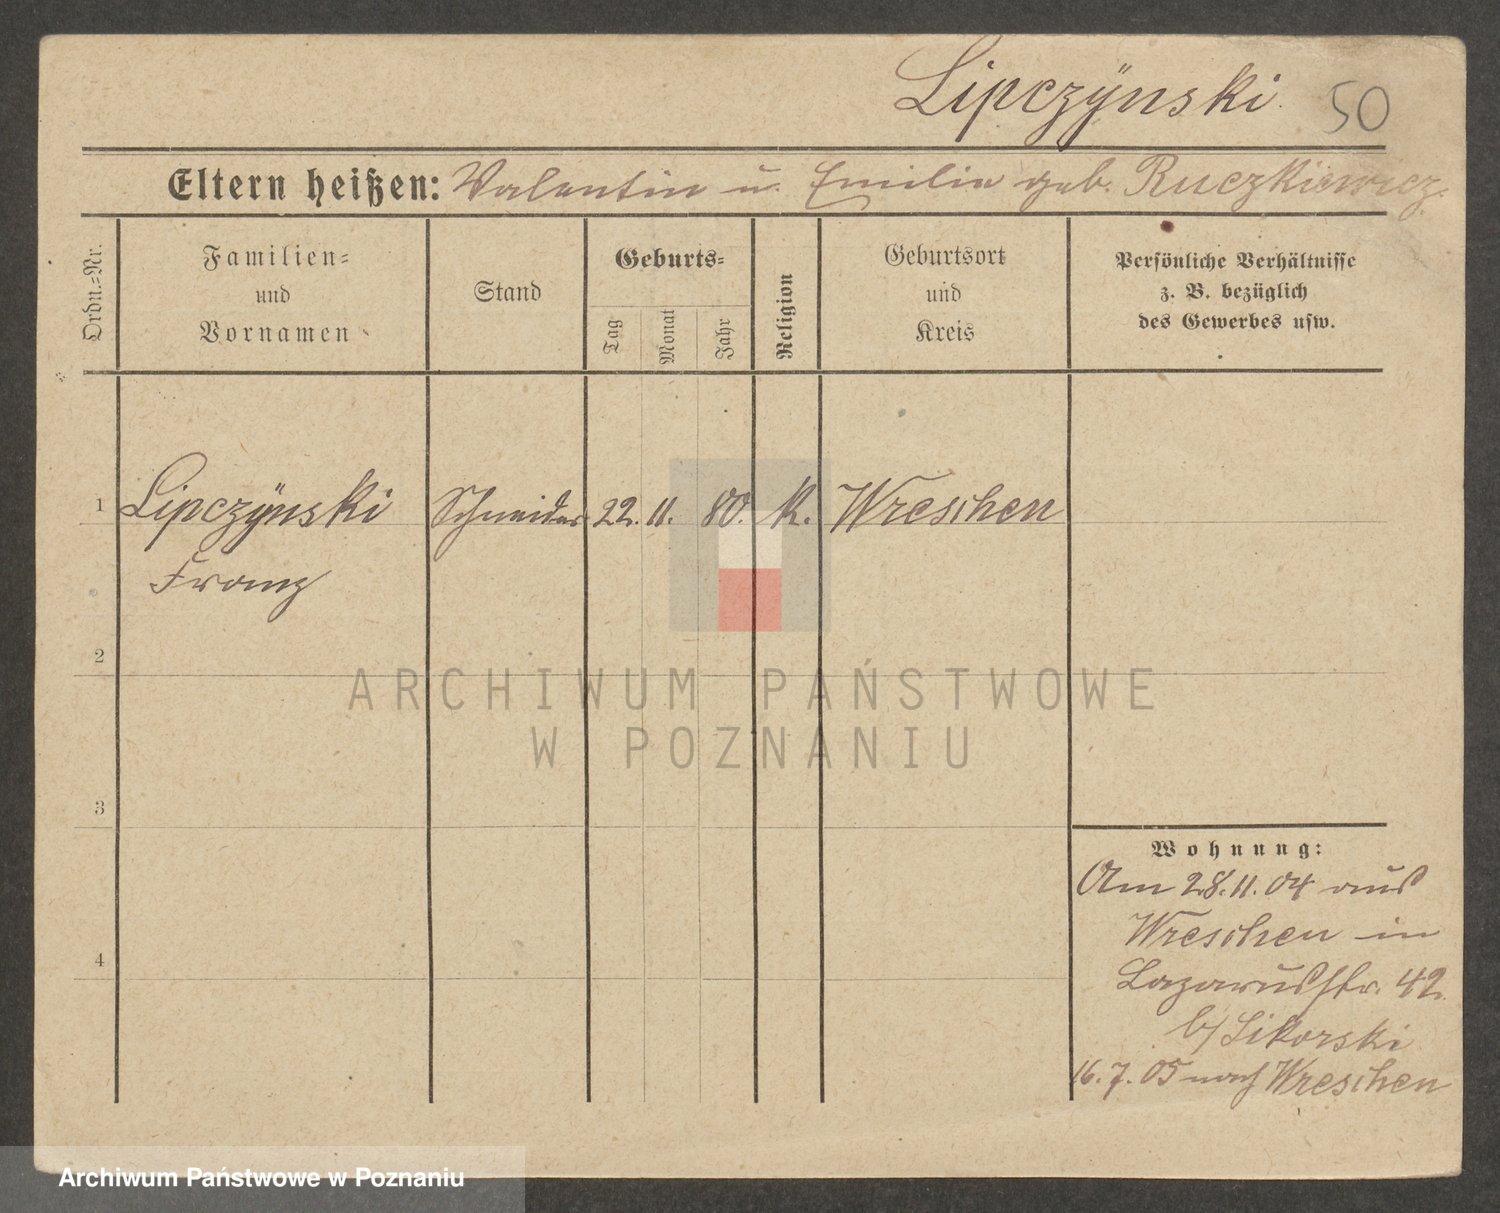 Lipczÿnski 50
Eltern heißen: Valentin u. Emilie geb. Ruczkiewicz.
Ordn.-Nr.
Familien-
und
Vornamen
Stand
Geburts-
Tag
Monat
Jahr
Religion
Geburtsort
und
Kreis
Persönliche Verhältnisse
z. B. bezüglich
des Gewerbes usw.
1 Lipczÿnski Schneider 22. 11. 80. K. Wreschen
Franz
2
3
4
ARCHIWUM PAŃSTWOWE
W POZNANIU
Wohnung:
Am 28.11.04 aus
Wreschen in
Lazarusstr. 42
b/ Sikorski
16.7.05 nach Wreschen
Archiwum Państwowe w Poznaniu